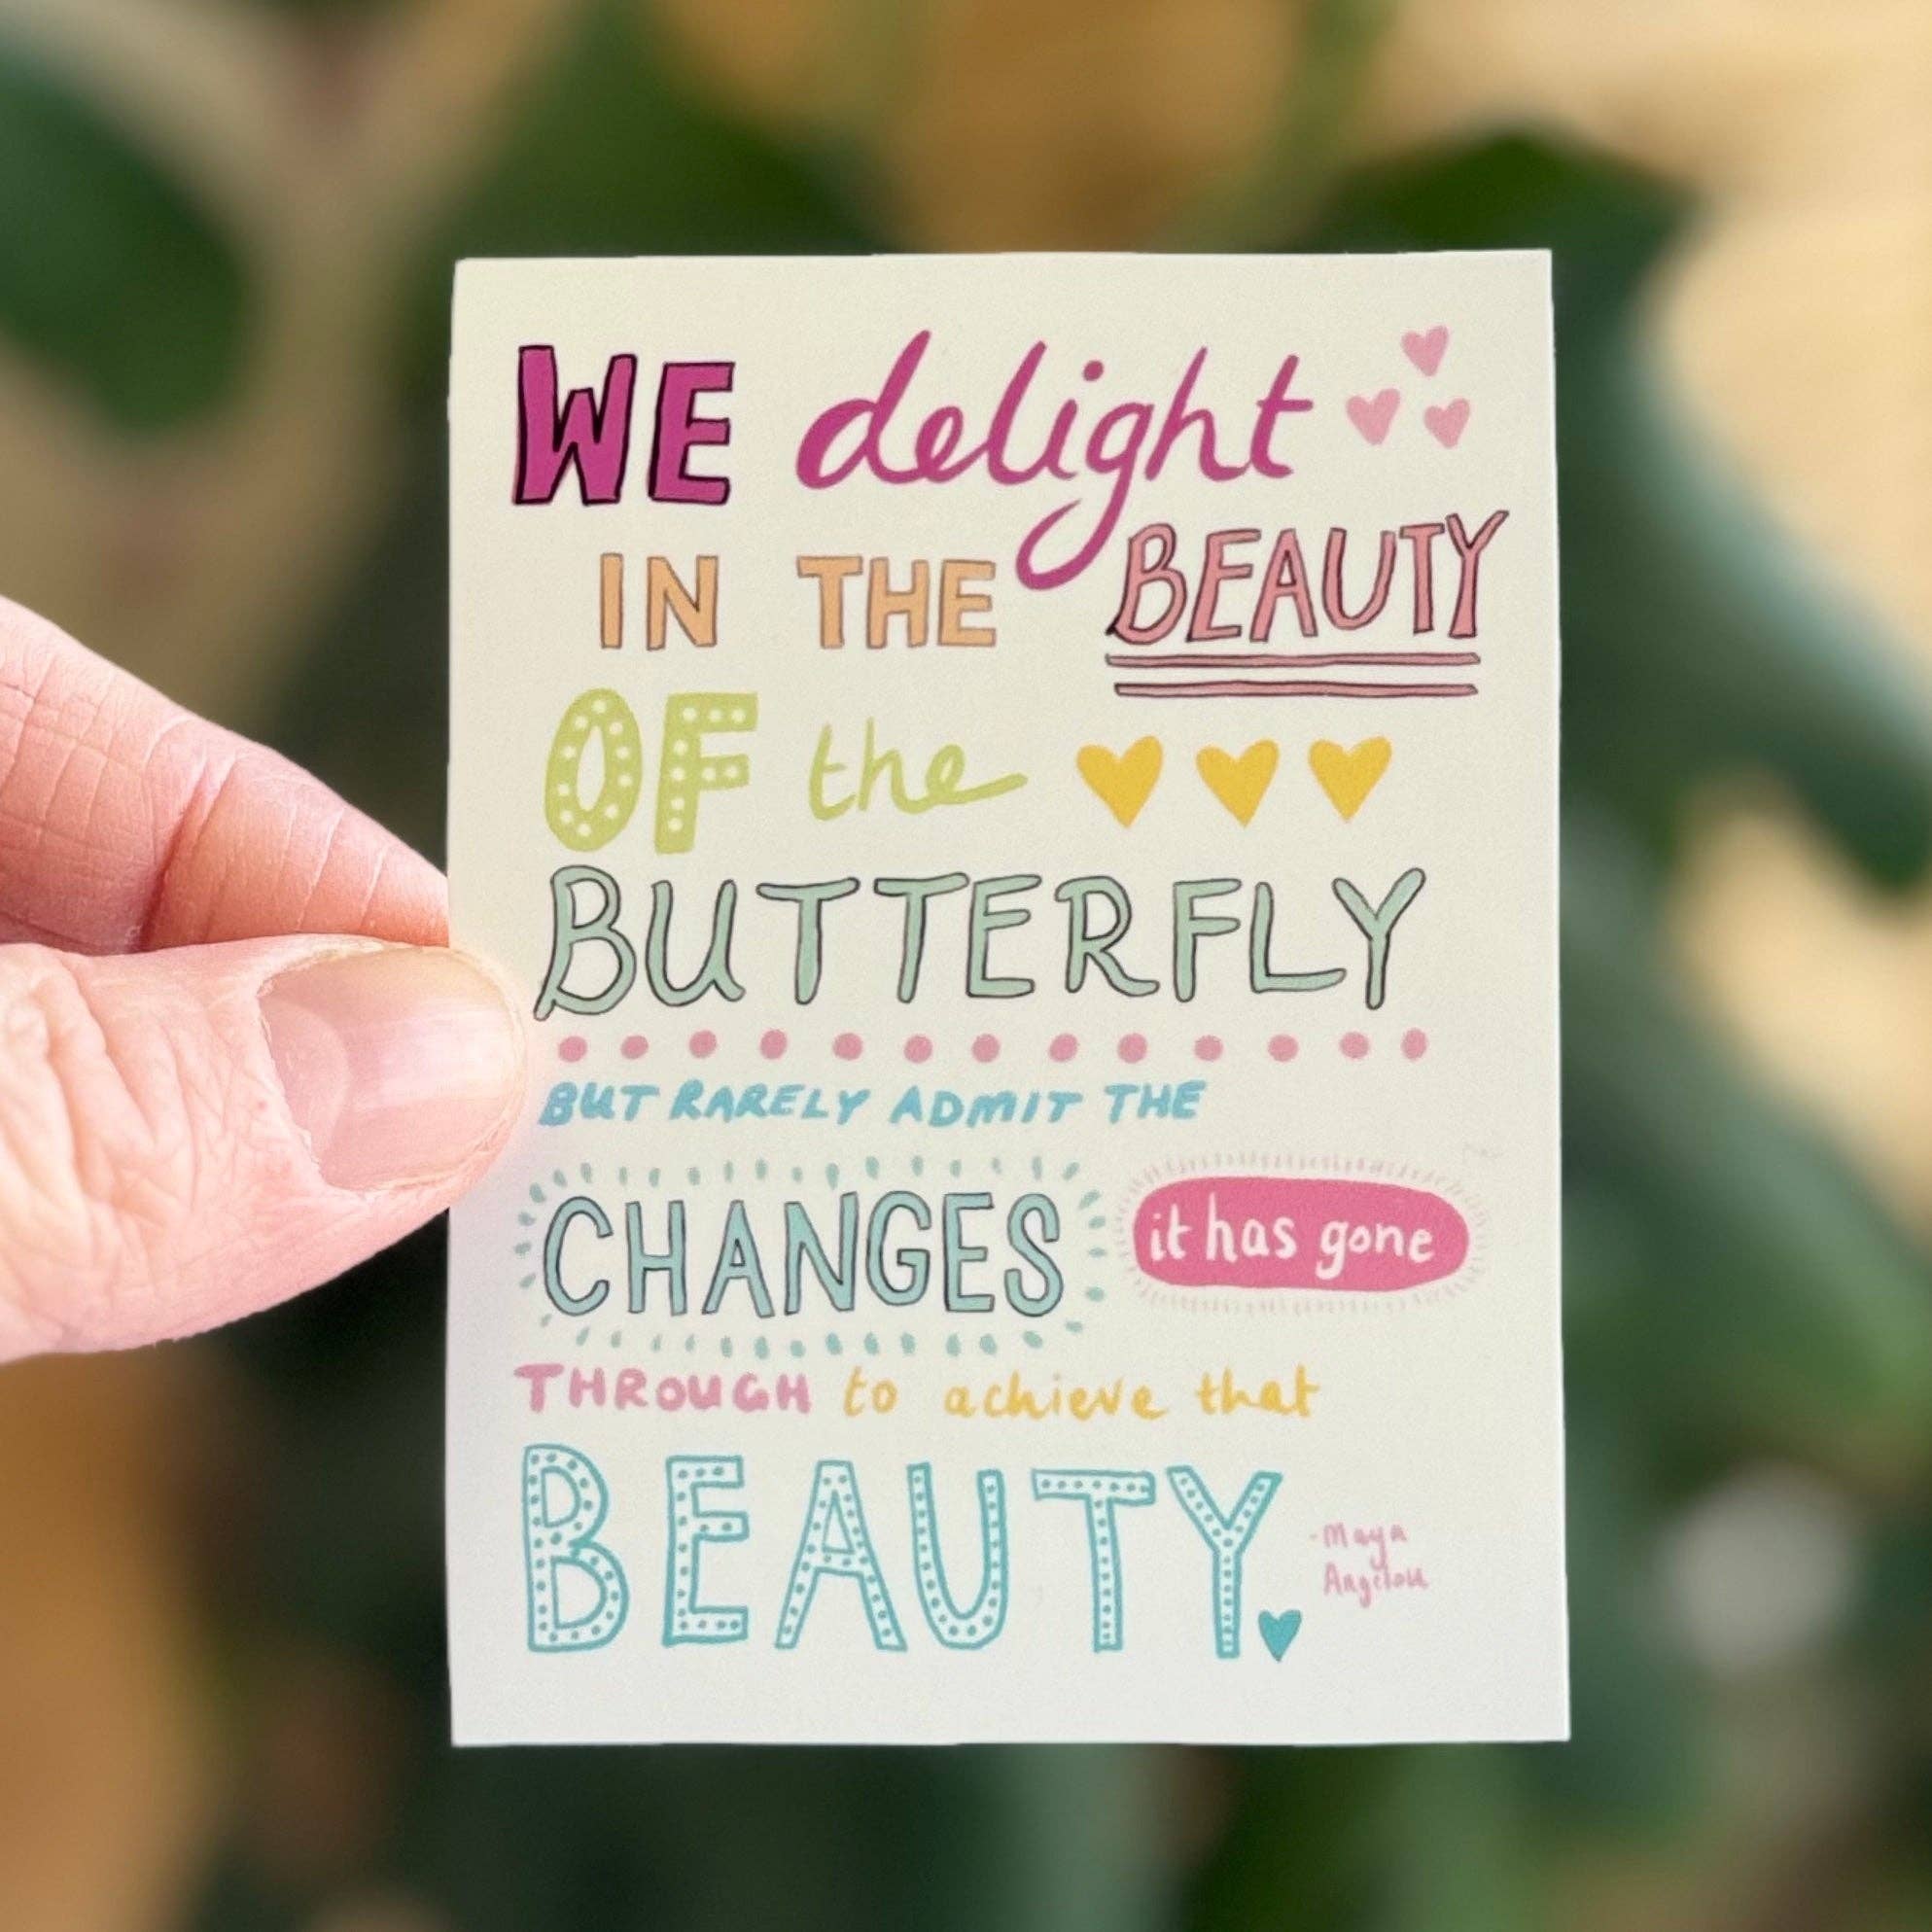 WE delight
IN THE BEAUTY
OF the
BUTTERFLY
BUT RARELY ADMIT THE
CHANGES it has gone
THROUGH to achieve that
BEAUTY.
-Maya
Angelou